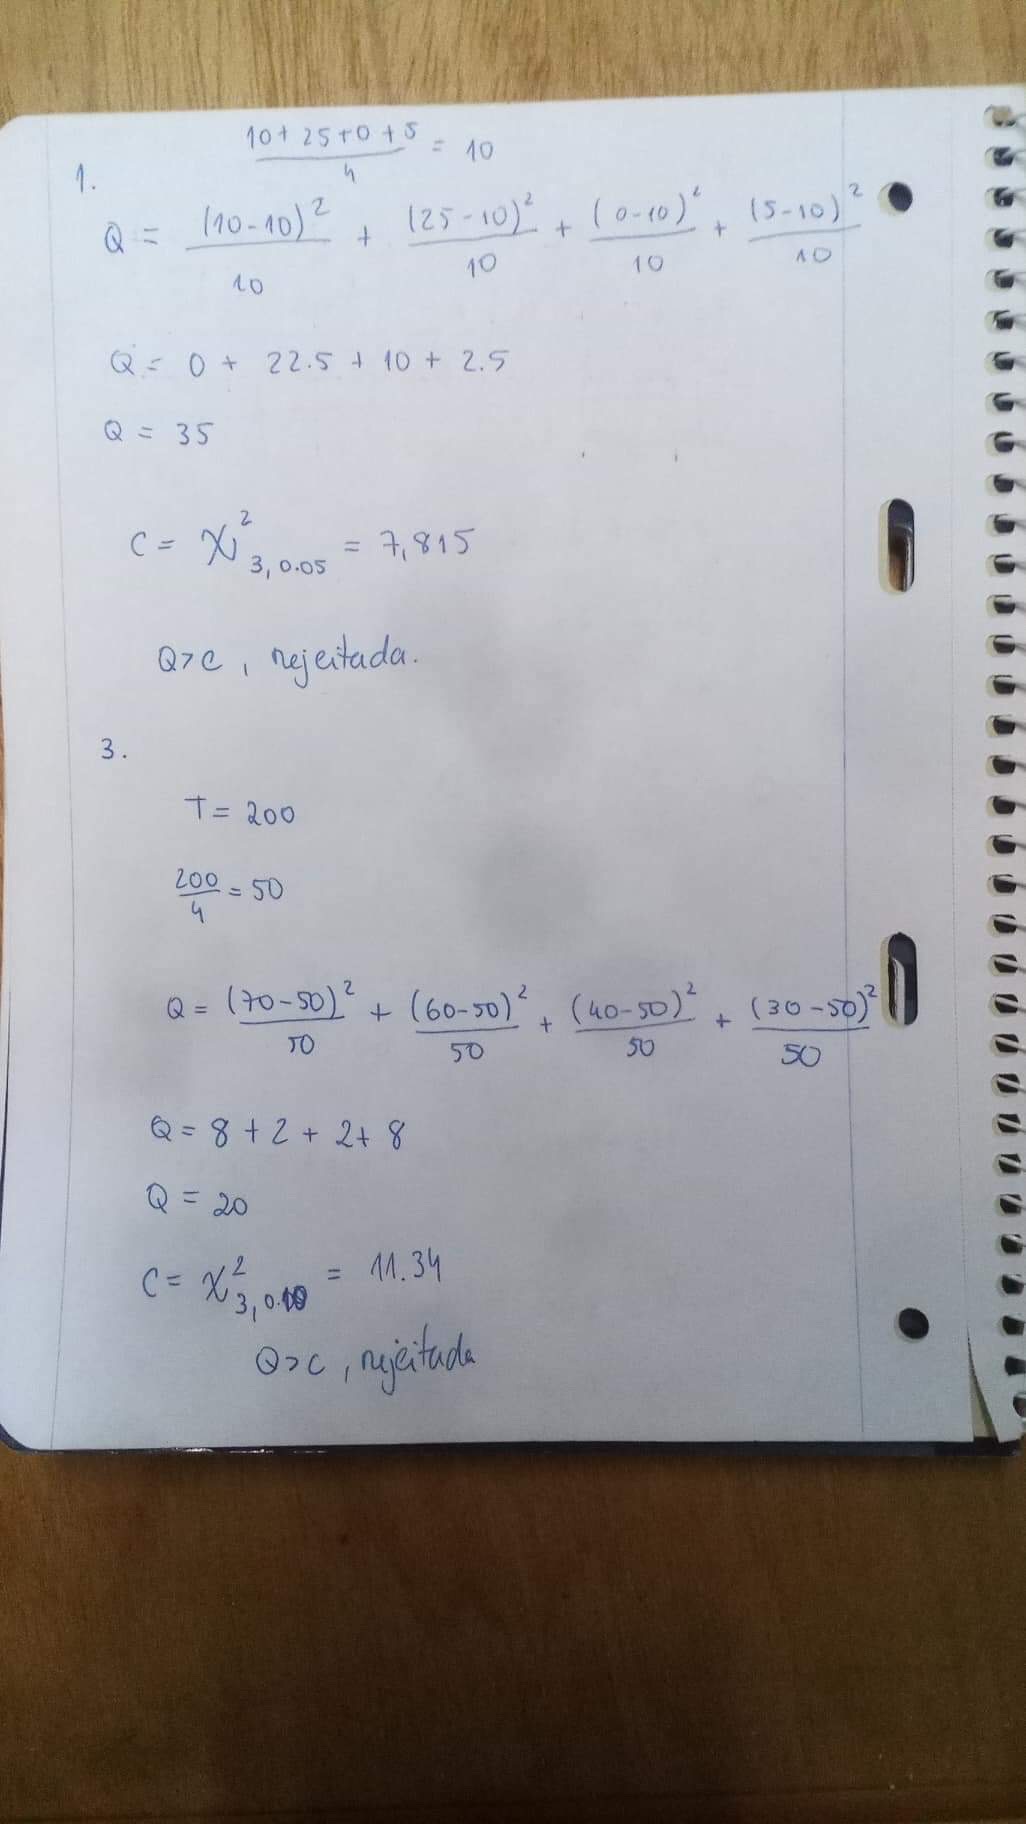 10+25+0+5/4 = 10
1.
Q = (10-10)²/10 + (25-10)²/10 + (0-10)²/10 + (5-10)²/10
Q = 0 + 22.5 + 10 + 2.5
Q = 35
C = χ²3,0.05 = 7,815
Q>C, rejeitada.
3.
T= 200
200/4 = 50
Q = (70-50)²/50 + (60-50)²/50 + (40-50)²/50 + (30-50)²/50
Q = 8 + 2 + 2 + 8
Q = 20
C = χ²3, = 11.34
Q>C, rejeitada